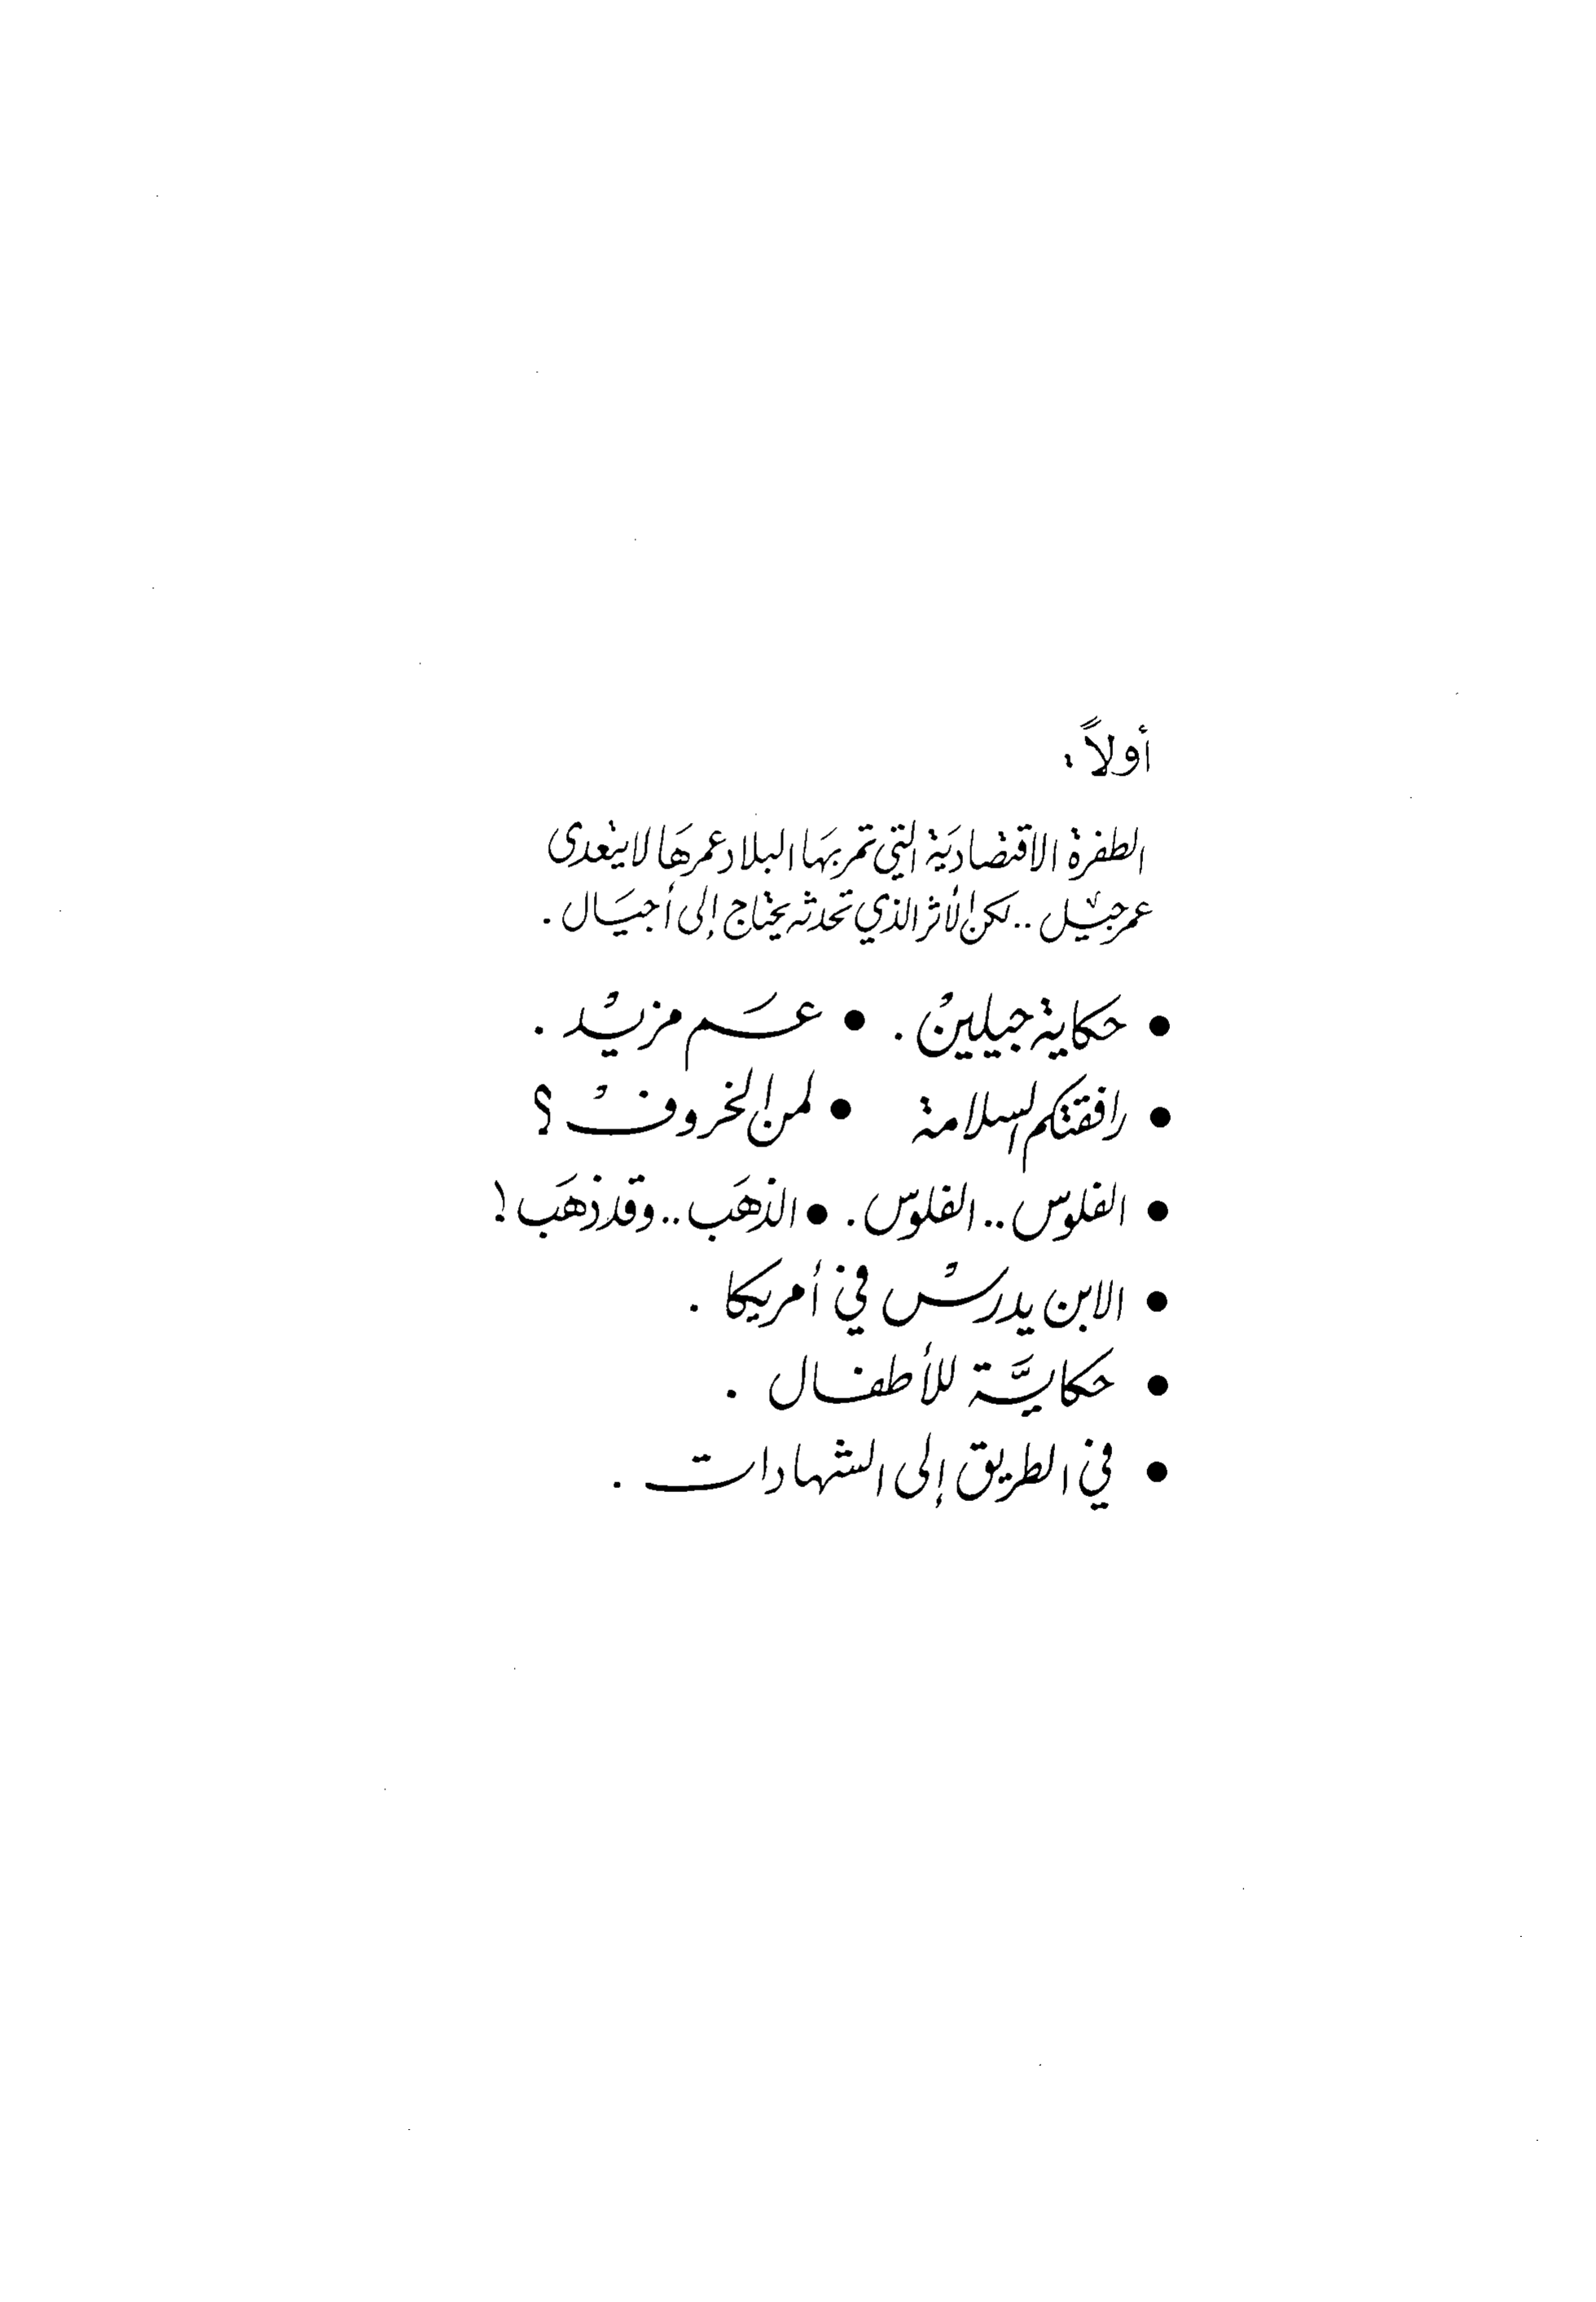 أولاً:
الطفرة الاقتصادية التي تمر بها البلاد عمرها لا يتعدى
عمر جيل .. لكن الأثر الذي تحدثه يحتاج إلى أجيال .
• حكاية جيلين . • عم مزيد .
• رافقتكم السلامة • لمن الخروف ؟
• الفلوس .. الفلوس . • الذهب .. وقد ذهب !
• الابن يدرس في أمريكا .
• حكاية للأطفال .
• في الطريق إلى الشهادات .